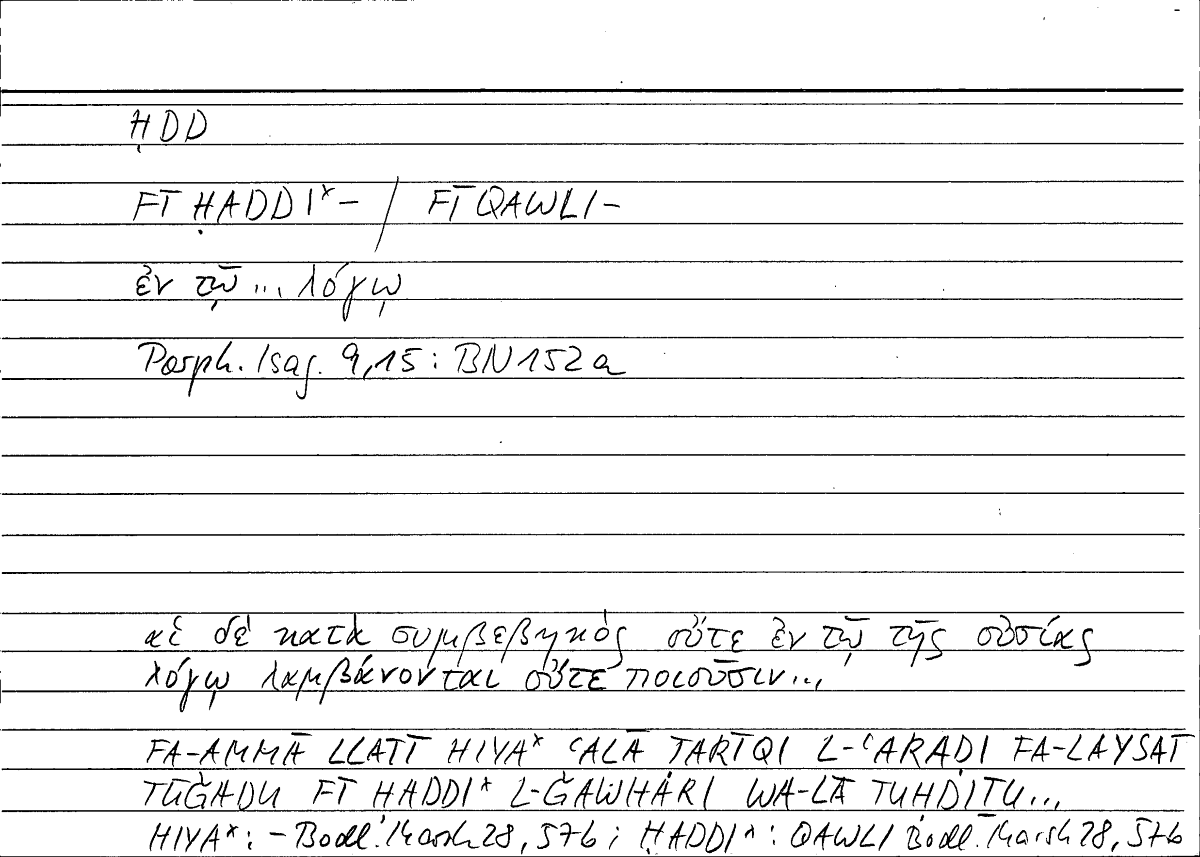 ḤDD
FĪ ḤADDI*– / FĪ QAWLI–
ἐν τῷ ... λόγῳ
Porph. Isag. 9,15: BN 152a
αἱ δὲ κατὰ συμβεβηκὸς οὔτε ἐν τῷ τῆς οὐσίας
λόγῳ λαμβάνονται οὔτε ποιοῦσιν...
FA-AMMĀ LLATĪ HIYA* ʿALĀ ṬARĪQI L-ʿARAḌI FA-LAYSAT
TŪǦADU FĪ ḤADDI* L-ǦAWHARI WA-LĀ TUḤDIṮU...
HIYA*: – Bodl. Marsh 28, 57b; ḤADDI*: QAWLI Bodl. Marsh 28, 57b